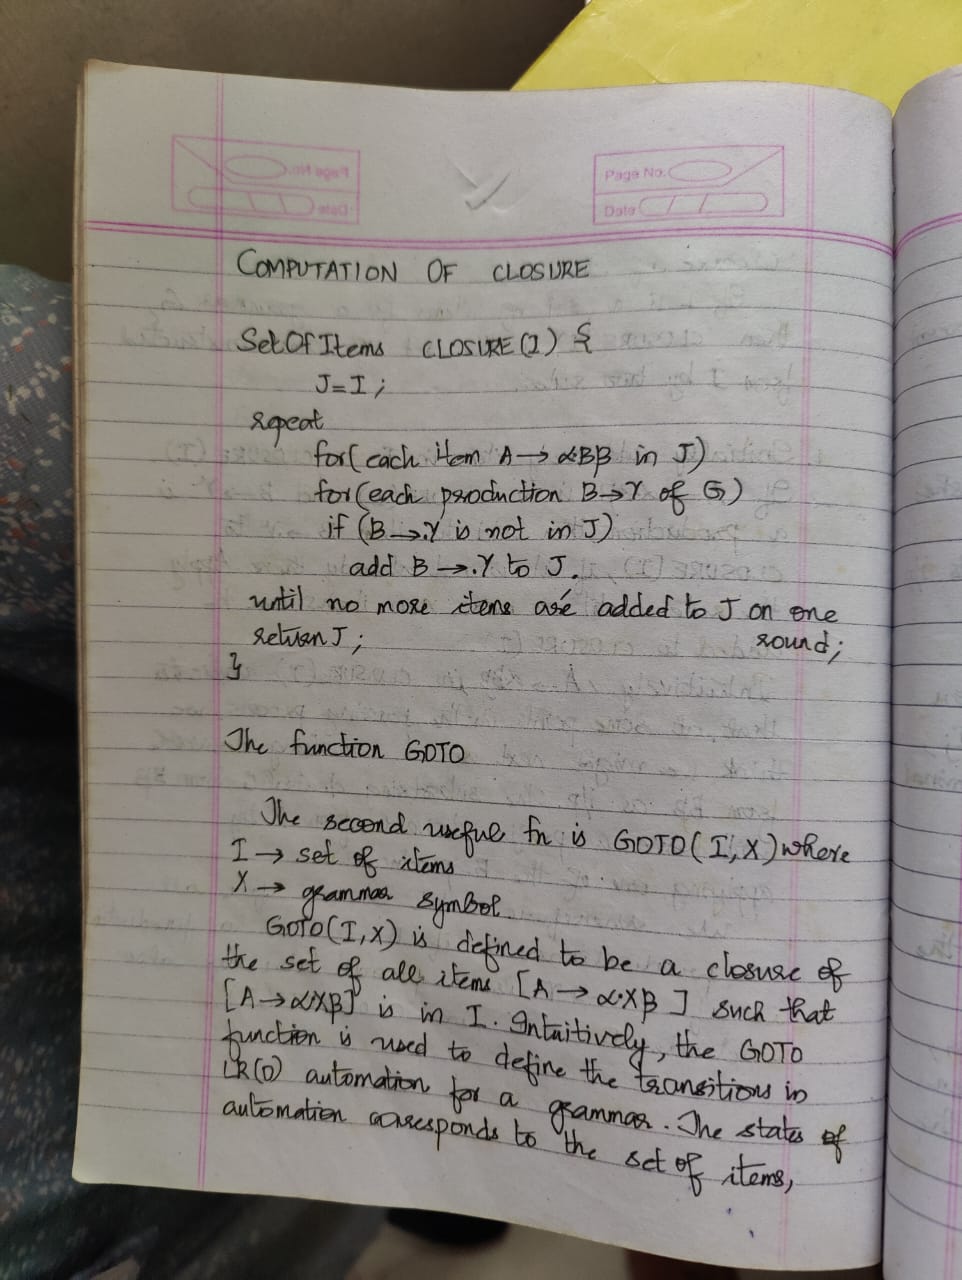 Page No.
Date
COMPUTATION OF CLOSURE
SetOfItems CLOSURE(I) {
J=I;
repeat
for(each item A→α.Bβ in J)
for(each production B→γ of G)
if (B→.γ is not in J)
add B→.γ to J.
until no more items are added to J on one
return J; round;
}
The function GOTO
The second useful fn is GOTO(I,X) where
I → set of items
X → grammar symbol
GOTO(I,X) is defined to be a closure of
the set of all items [A→α.Xβ] such that
[A→α.Xβ] is in I. Intuitively, the GOTO
function is used to define the transitions in
LR(0) automation for a grammar. The states of
automation corresponds to the set of items,